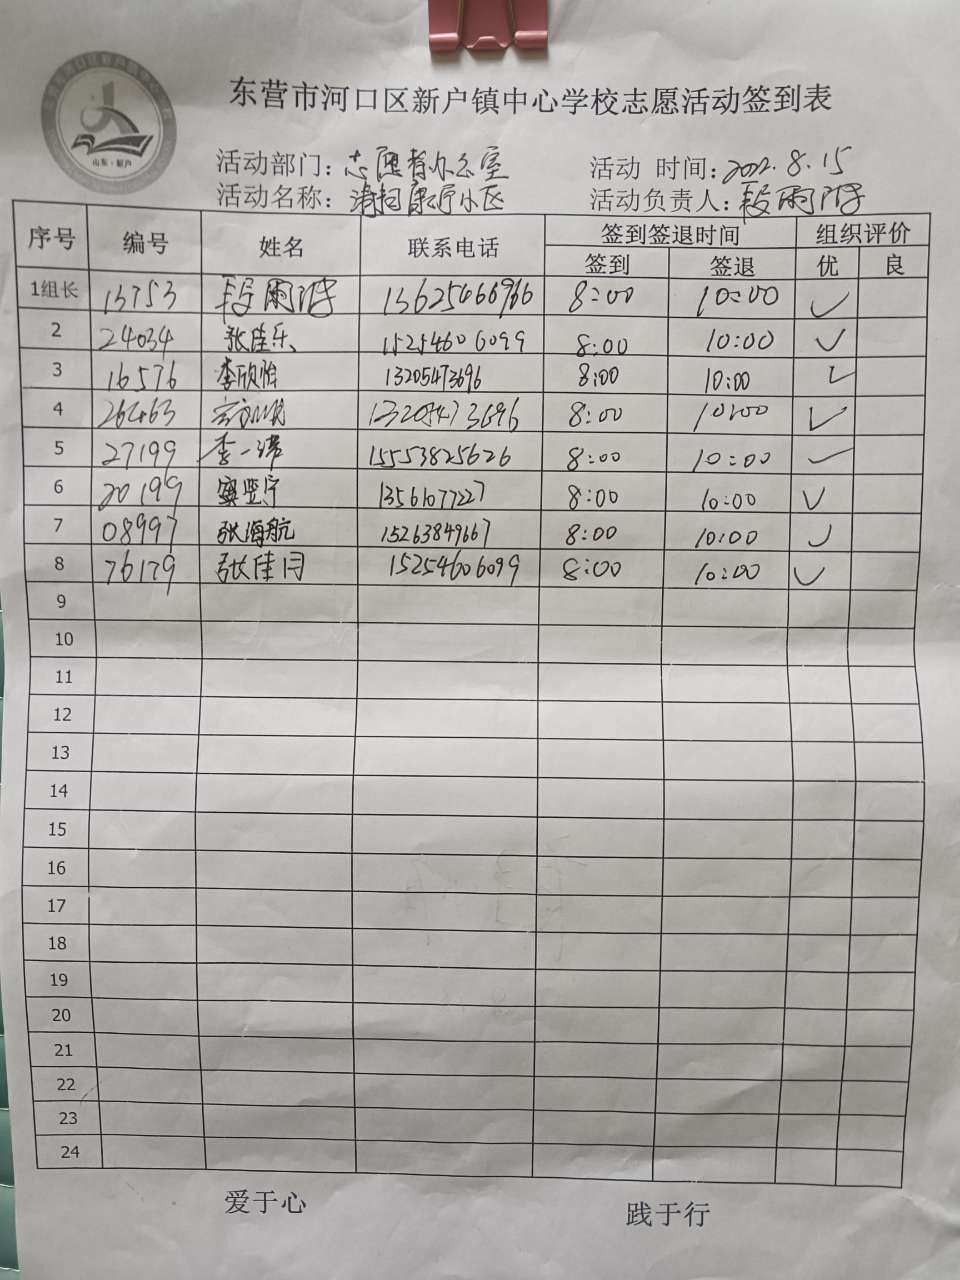 东营市河口区新户镇中心学校志愿活动签到表
山东·新户
活动部门：志愿者办公室 活动 时间：2022.8.15
活动名称：清扫康宁小区 活动负责人：段雨
序号 编号 姓名 联系电话 签到签退时间 组织评价
签到 签退 优 良
1组长 13753 段雨 13625466966 8:00 10:00 ✓
2 24034 张佳乐 15254606099 8:00 10:00 ✓
3 16576 李欣怡 13205473696 8:00 10:00 ✓
4 262663 13205473696 8:00 10:00 ✓
5 27199 李一诺 15553825626 8:00 10:00 ✓
6 20199 宁 13561077227 8:00 10:00 ✓
7 08997 张海航 15263849667 8:00 10:00 ✓
8 76179 张佳闫 15254606099 8:00 10:00 ✓
9
10
11
12
13
14
15
16
17
18
19
20
21
22
23
24
爱于心 践于行